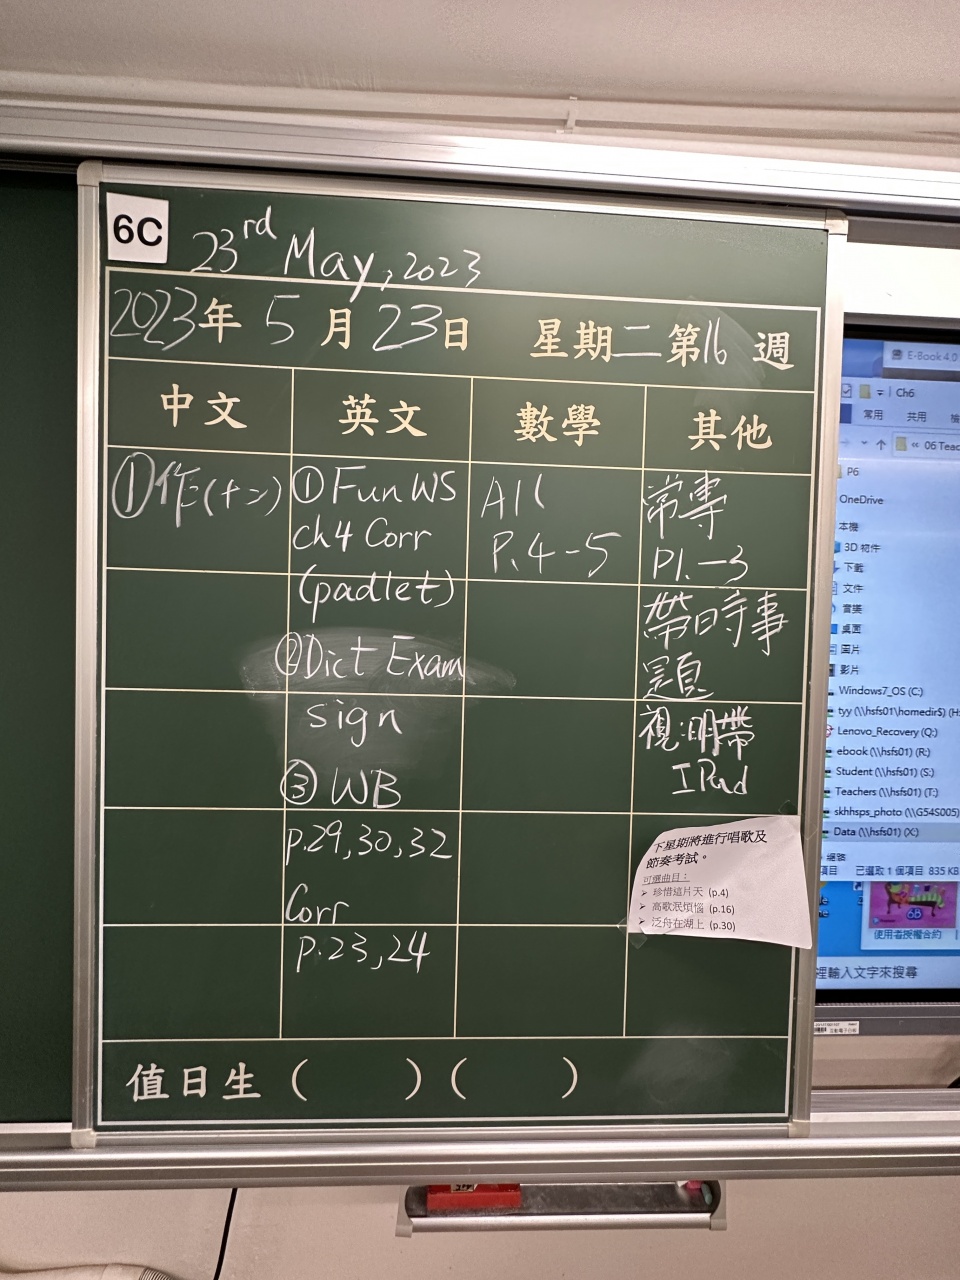 6C
23rd May, 2023
2023年 5 月 23日 星期二 第16 週
中文 英文 數學 其他
①作(十二)
①Fun WS
ch4 Corr
(padlet)
②Dict Exam
sign
③ WB
p.29,30,32
Corr
p.23,24
All
P.4-5
常專
P1.-3
帶時事
題
視:明帶
IPad
下星期將進行唱歌及
節奏考試。
可選曲目:
➢ 珍惜這片天 (p.4)
➢ 高歌泯煩惱 (p.16)
➢ 泛舟在湖上 (p.30)
值日生 ( ) ( )
E-Book 4.0
Ch6
常用 共用
06 Teac
P6
OneDrive
本機
3D 物件
下載
文件
音樂
桌面
圖片
影片
Windows7_OS (C:)
tyy (\\hsfs01\homedir$) (H:
Lenovo_Recovery (Q:)
ebook (\\hsfs01) (R:)
Student (\\hsfs01) (S:)
Teachers (\\hsfs01) (T:)
skhhsps_photo (\\G54S005)
Data (\\hsfs01) (X:)
網路
項目 已選取 1 個項目 835 KB
6B
使用者授權合約
裡輸入文字來搜尋